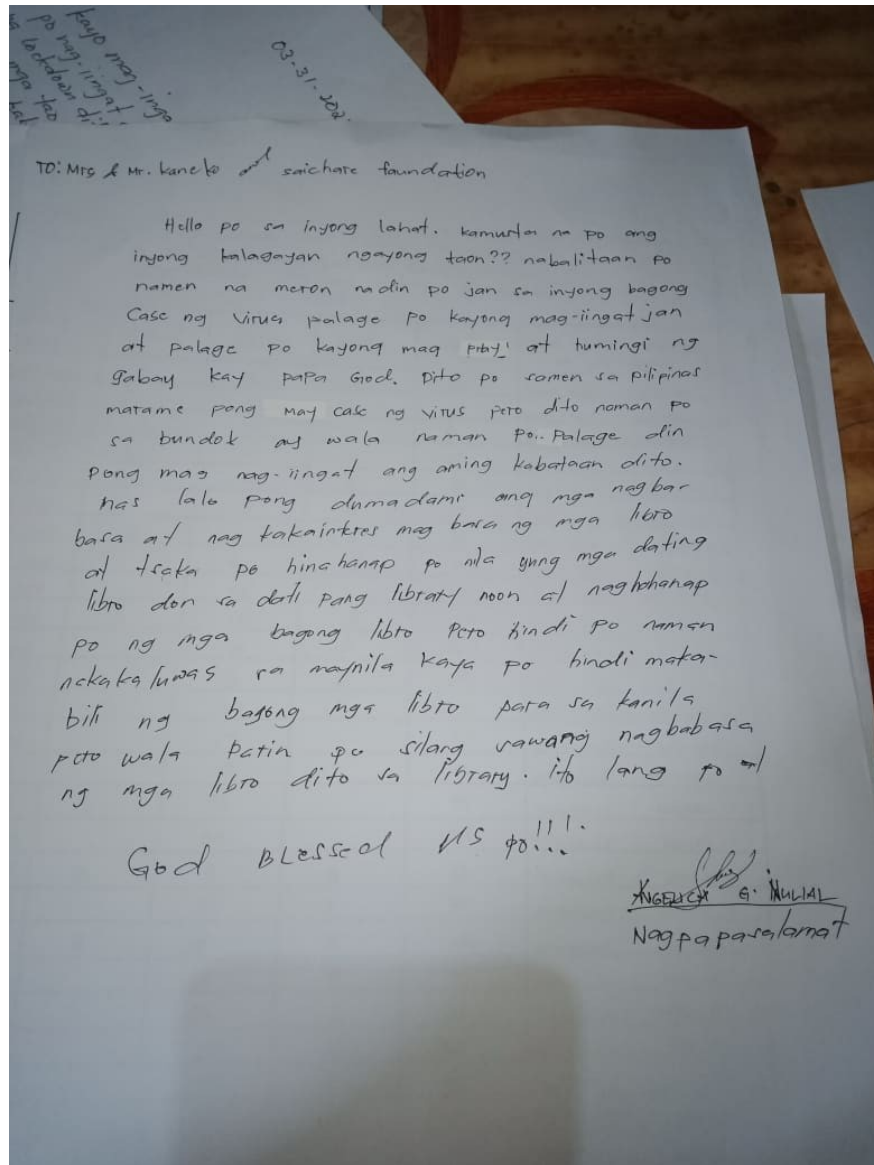 kayo mag-inga
po nag-iingat
lockdown di
mga tao
03-31-202
TO: Mrs & Mr. Kaneko and saichare foundation
Hello po sa inyong lahat. kamusta na po ang
inyong kalagayan ngayong taon?? nabalitaan po
namen na meron nadin po jan sa inyong bagong
Case ng virus palage po kayong mag-iingat jan
at palage po kayong mag pray! at humingi ng
gabay kay papa God. Dito po samen sa pilipinas
matame pong may case ng virus pero dito naman po
sa bundok ay wala naman po.. Palage din
pong mag nag-iingat ang aming kabataan dito.
mas lalo pong dumadami ang mga nagba-
basa at nag kakaintres mag basa ng mga libro
at tsaka po hinahanap po nila yung mga dating
libro don sa dati pang library noon at naghahanap
po ng mga bagong libro Pero hindi po naman
nakakaluwas sa maynila kaya po hindi maka-
bili ng bagong mga libro para sa kanila
pero wala Patin po silang sawang nagbabasa
ng mga libro dito sa library. ito lang po
God BLessed us po!!!...
ANGELICA G. INULIAL
Nagpapasalamat